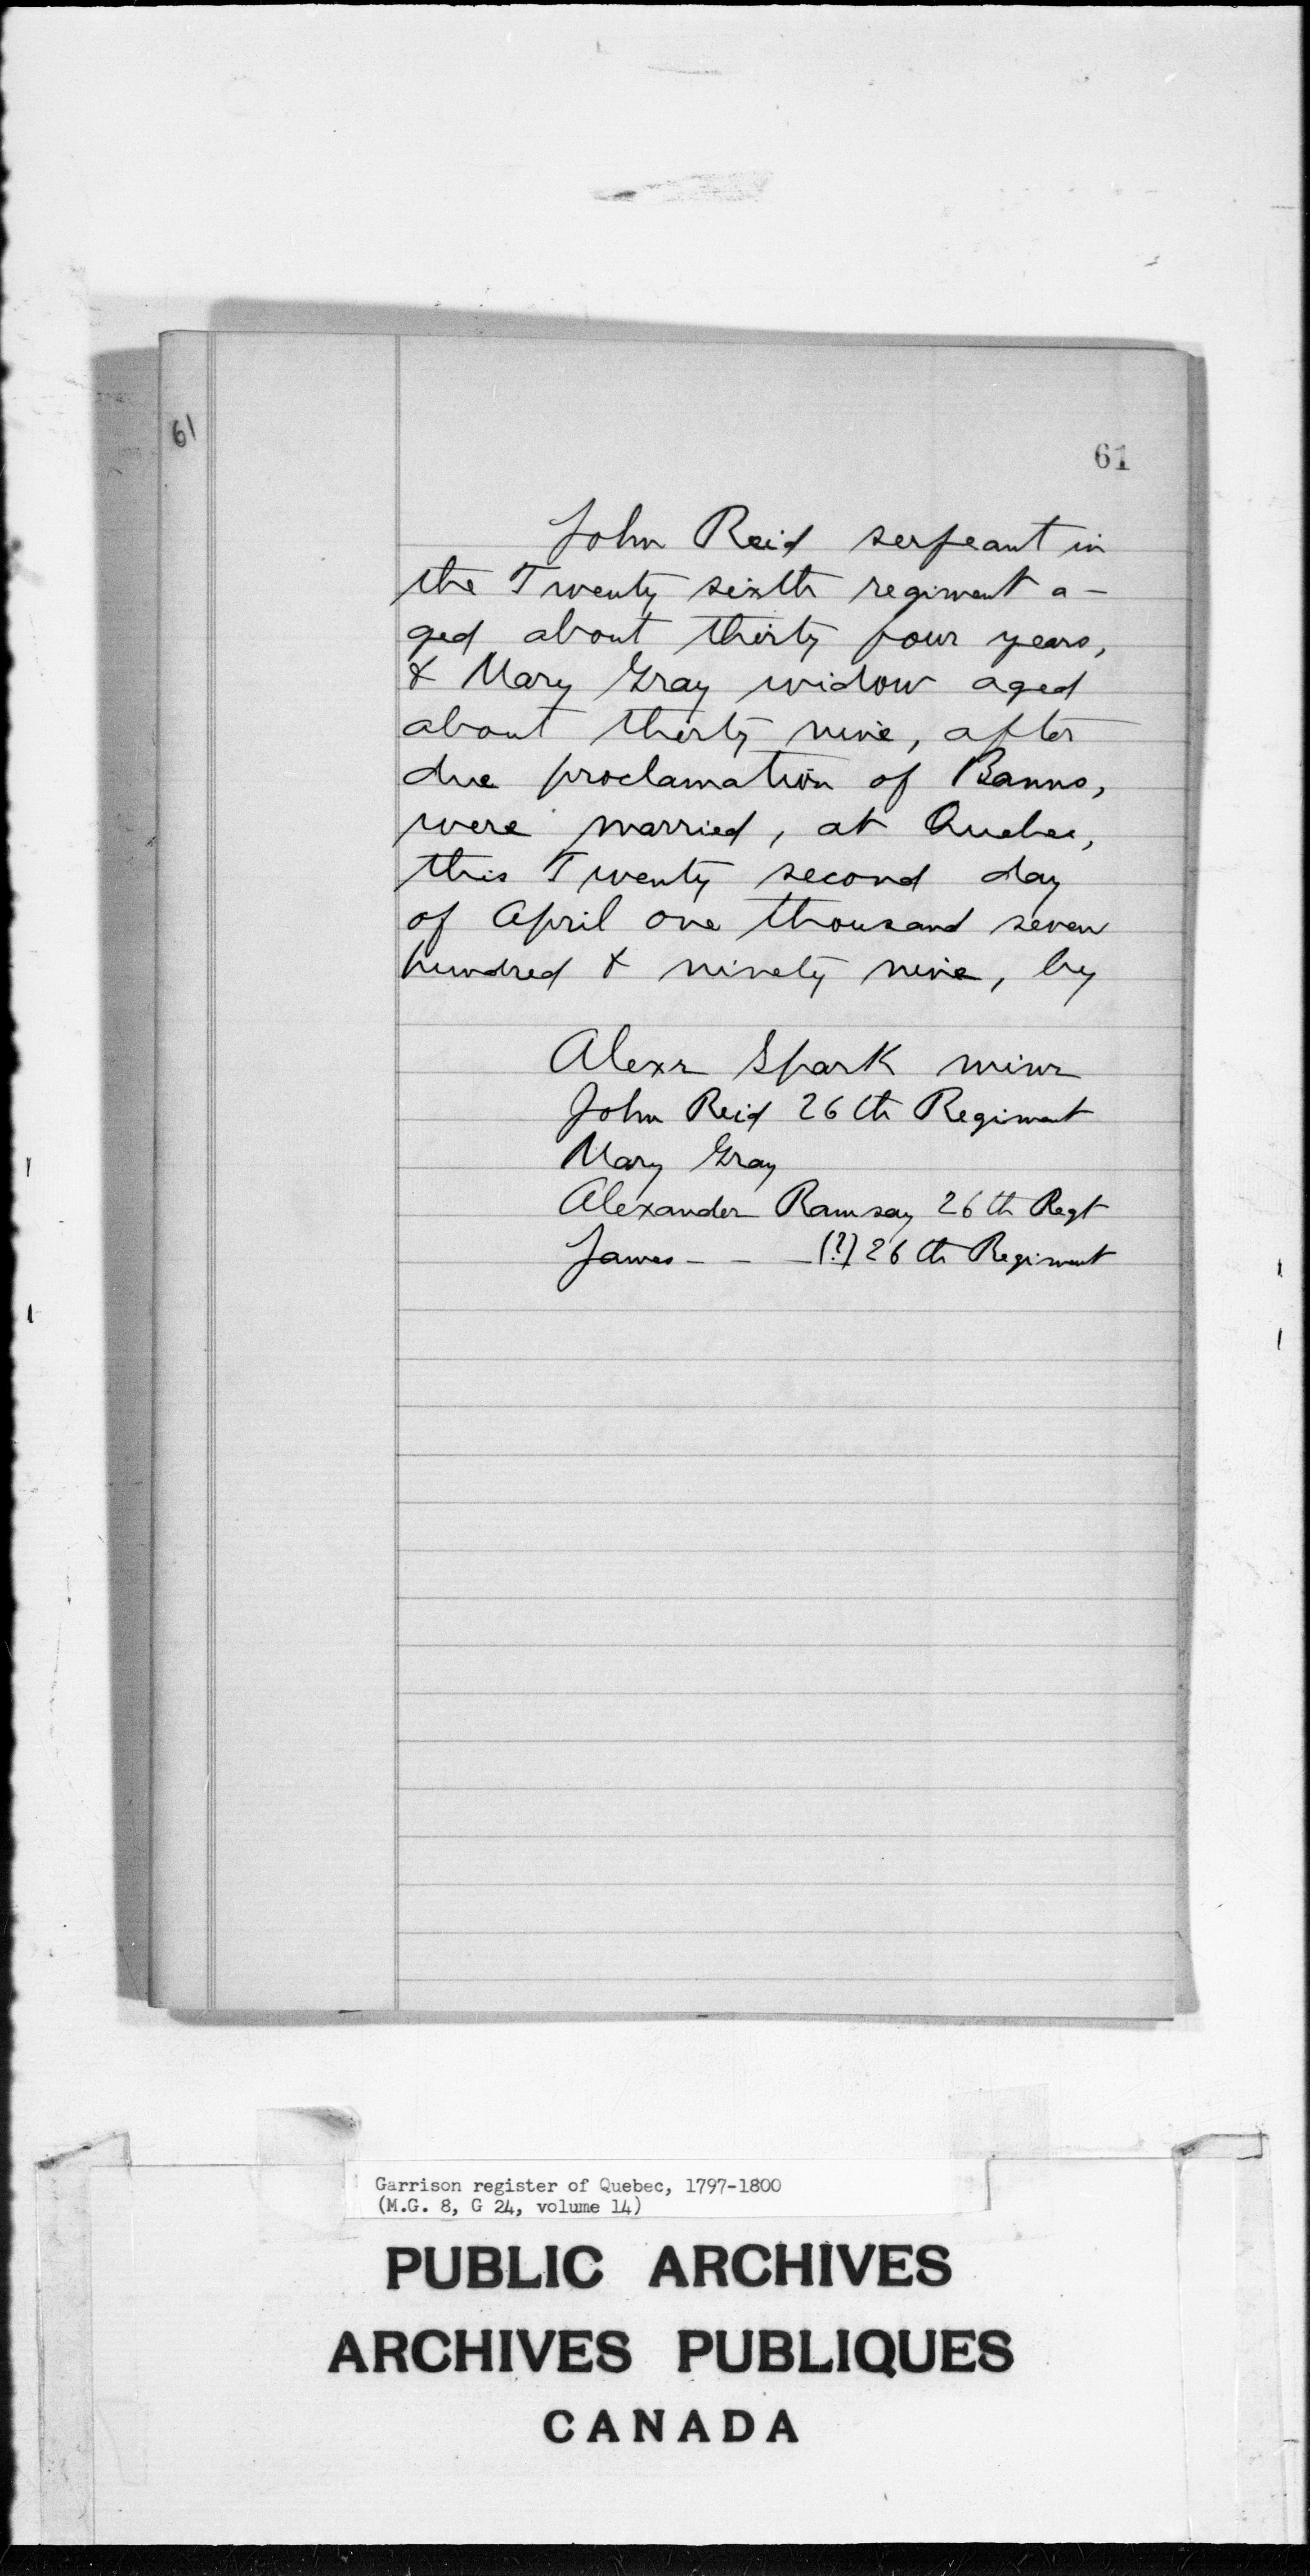 61
61
John Reid serjeant in
the Twenty sixth regiment a-
ged about thirty four years,
& Mary Gray widow aged
about thirty nine, after
due proclamation of Banns,
were married, at Quebec,
this Twenty second day
of April one thousand seven
hundred & ninety nine, by
Alexr Spark minr
John Reid 26th Regiment
Mary Gray
Alexander Ramsay 26th Regt
James - - - (?) 26th Regiment
Garrison register of Quebec, 1797-1800
(M.G. 8, G 24, volume 14)
PUBLIC ARCHIVES
ARCHIVES PUBLIQUES
CANADA